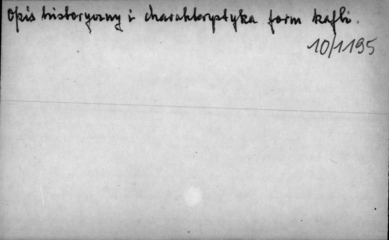 Opis historyczny i charakterystyka form kafli.
10/1195